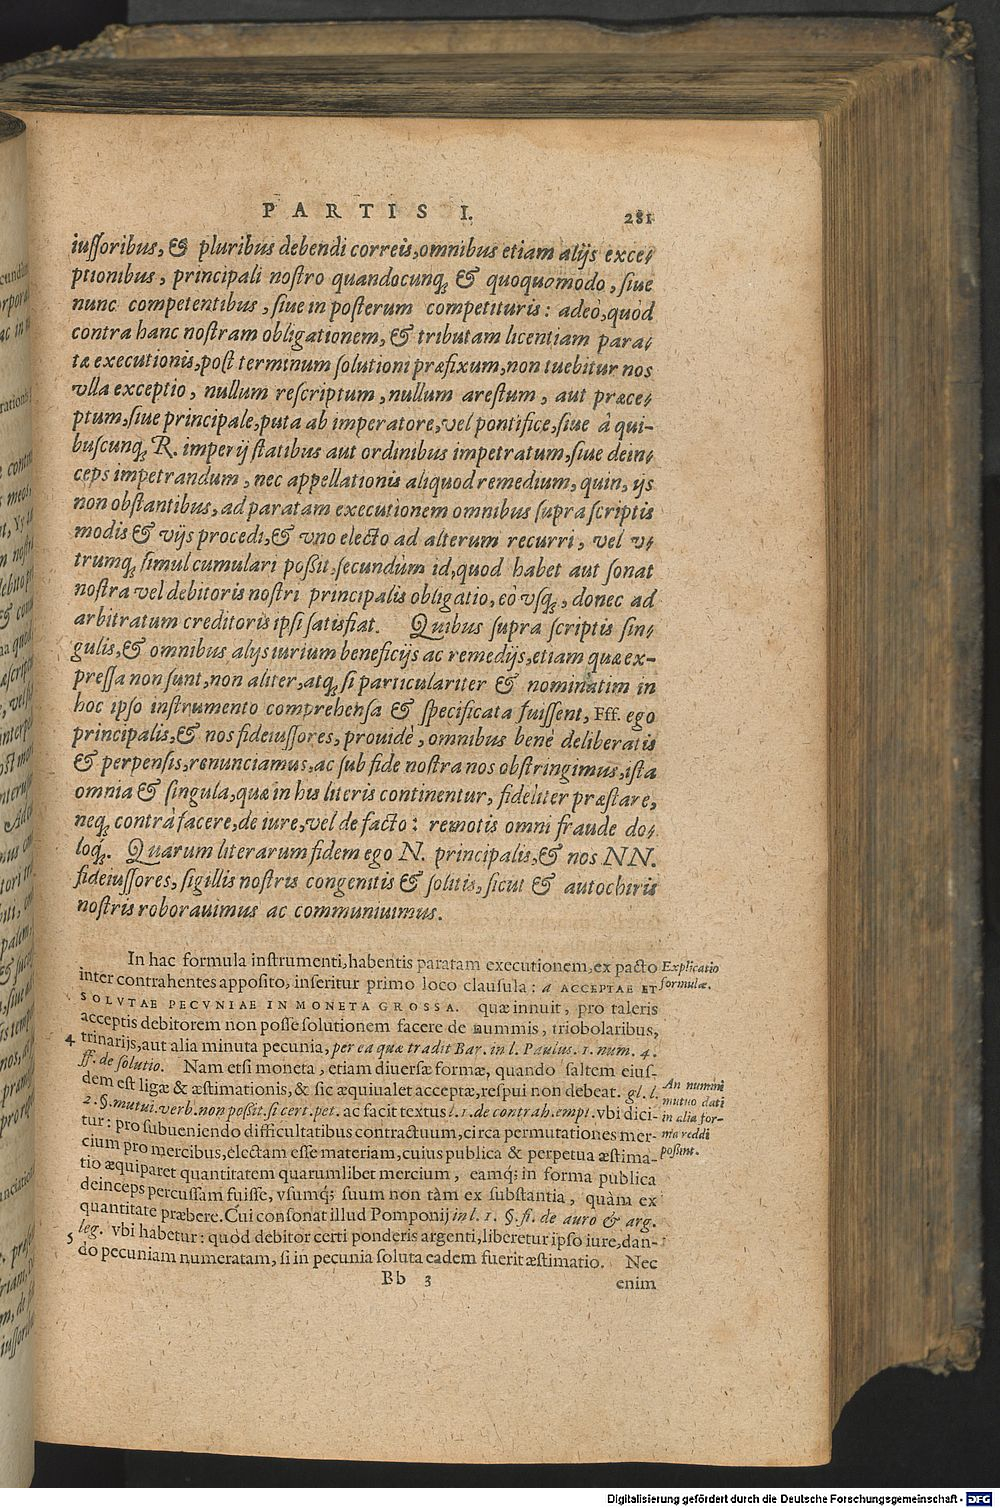 PARTIS I. 281
iussoribus, & pluribus debendi correis, omnibus etiam alijs exce-
ptionibus, principali nostro quandocunq; & quoquomodo, siue
nunc competentibus, siue in posterum competituris: adeò, quòd
contra hanc nostram obligationem, & tributam licentiam para-
tæ executionis, post terminum solutioni præfixum, non tuebitur nos
vlla exceptio, nullum rescriptum, nullum arestum, aut præce-
ptum, siue principale, puta ab imperatore, vel pontifice, siue à qui-
buscunq; R. imperij statibus aut ordinibus impetratum, siue dein-
ceps impetrandum, nec appellationis aliquod remedium, quin, ijs
non obstantibus, ad paratam executionem omnibus supra scriptis
modis & vijs procedi, & vno electo ad alterum recurri, vel v-
trumq; simul cumulari possit, secundùm id, quod habet aut sonat
nostra vel debitoris nostri principalis obligatio, eò vsq;, donec ad
arbitratum creditoris ipsi satisfiat. Quibus supra scriptis sin-
gulis, & omnibus alijs iurium beneficijs ac remedijs, etiam quæ ex-
pressa non sunt, non aliter, atq; si particulariter & nominatim in
hoc ipso instrumento comprehensa & specificata fuissent, Fff. ego
principalis, & nos fideiussores, prouidè, omnibus benè deliberatis
& perpensis, renunciamus, ac sub fide nostra nos obstringimus, ista
omnia & singula, quæ in his literis continentur, fideliter præstare,
neq; contrà facere, de iure, vel de facto: remotis omni fraude do-
loq;. Quarum literarum fidem ego N. principalis, & nos NN.
fideiussores, sigillis nostris congenitis & solitis, sicut & autochiris
nostris roborauimus ac communiuimus.
In hac formula instrumenti, habentis paratam executionem, ex pacto
inter contrahentes apposito, inseritur primo loco clausula: a ACCEPTAE ET
SOLVTAE PECVNIAE IN MONETA GROSSA. quæ innuit, pro taleris
acceptis debitorem non posse solutionem facere de nummis, triobolaribus,
4 trinarijs, aut alia minuta pecunia, per ea quæ tradit Bar. in l. Paulus. 1. num. 4.
ff. de solutio. Nam etsi moneta, etiam diuersæ formæ, quando saltem eius-
dem est ligæ & æstimationis, & sic æquiualet acceptæ, respui non debeat. gl. l.
2. §. mutui. verb. non possit. si cert. pet. ac facit textus l. 1. de contrah. empt. vbi dici-
tur: pro subueniendo difficultatibus contractuum, circa permutationes mer-
cium pro mercibus, electam esse materiam, cuius publica & perpetua æstima-
tio æquiparet quantitatem quarumlibet mercium, eamq; in forma publica
deinceps percussam fuisse, vsumq; suum non tàm ex substantia, quàm ex
quantitate præbere. Cui consonat illud Pomponij in l. 1. §. fi. de auro & arg.
5 leg. vbi habetur: quòd debitor certi ponderis argenti, liberetur ipso iure, dan-
do pecuniam numeratam, si in pecunia soluta eadem fuerit æstimatio. Nec
Bb 3 enim
Explicatio
formulæ.
An numini
mutuo dati
in alia for-
ma reddi
possint.
Digitalisierung gefördert durch die Deutsche Forschungsgemeinschaft - DFG